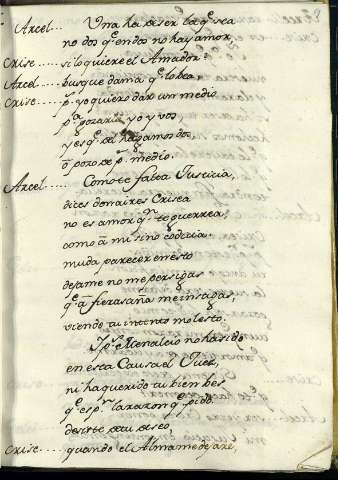 Arcel.... Una ha de ser la q̃ sea
no dos q̃ en dos no hay amor,
Crise.... si lo quiere el Amador?
Arcel.... busque dama q̃ lo sea
Crise.... p.^s yo quiero dar un medio
p.^a gozarlo yo y vos
y es q̃ le hagamos dos,
por medio.
Arcel..... Como te falta Justicia,
dices donaires Crisea
no es amor q.^n te guerrea,
como á mi sino codicia.
muda parecer en esto
dejame no me persigas
q̃ á fiera saña me instigas,
viendo tu intento molesto,
Y p.^s Atenalcio no ha sido
en esta Causa el Juez,
ni ha querido tu
q̃ es p.^r la razon q̃ pido
desiste de tu deseo,
Crise..... quando el Alma me dejare,